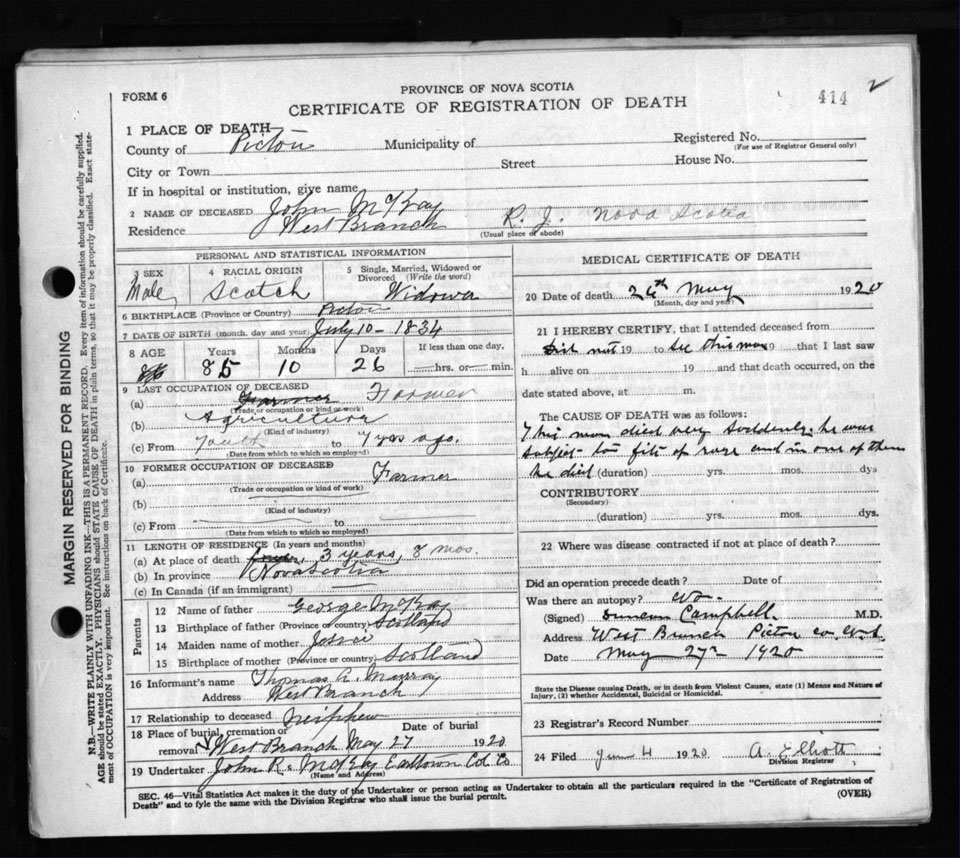 PROVINCE OF NOVA SCOTIA
FORM 6
CERTIFICATE OF REGISTRATION OF DEATH
414
2
1 PLACE OF DEATH
County of Pictou Municipality of Registered No.
(For use of Registrar General only)
City or Town Street House No.
If in hospital or institution, give name
2 NAME OF DECEASED John McKay
Residence West Branch R. J. Nova Scotia
(Usual place of abode)
PERSONAL AND STATISTICAL INFORMATION
3 SEX 4 RACIAL ORIGIN 5 Single, Married, Widowed or Divorced (Write the word)
Male Scotch Widower
6 BIRTHPLACE (Province or Country) Pictou
7 DATE OF BIRTH (month, day and year) July 10 - 1834
8 AGE Years Months Days If less than one day,
85 10 26 hrs. or min.
9 LAST OCCUPATION OF DECEASED
(a) Farmer Farmer
(Trade or occupation or kind of work)
(b) Agriculture
(Kind of industry)
(c) From Youth to 7 yrs ago.
(Date from which to which so employed)
10 FORMER OCCUPATION OF DECEASED
(a) Farmer
(Trade or occupation or kind of work)
(b)
(Kind of industry)
(c) From to
(Date from which to which so employed)
11 LENGTH OF RESIDENCE (In years and months)
(a) At place of death 3 years, 8 mos.
(b) In province Nova Scotia
(c) In Canada (if an immigrant)
Parents
12 Name of father George McKay
13 Birthplace of father (Province or country) Scotland
14 Maiden name of mother
15 Birthplace of mother (Province or country) Scotland
16 Informant's name Thomas A. Murray
Address West Branch
17 Relationship to deceased Neiphew
18 Place of burial, cremation or removal Date of burial
West Branch May 27 1920
19 Undertaker John R. McKay Earltown Col. Co
(Name and Address)
MEDICAL CERTIFICATE OF DEATH
20 Date of death 26th May 1920
(Month, day and year)
21 I HEREBY CERTIFY, that I attended deceased from
Did not 19 to See this man 19 that I last saw
h alive on 19 and that death occurred, on the
date stated above, at m.
The CAUSE OF DEATH was as follows:
This man died very suddenly; he was
subject to fits of rage and in one of them
he died (duration) yrs. mos. dys
CONTRIBUTORY
(Secondary)
(duration) yrs. mos. dys.
22 Where was disease contracted if not at place of death?
Did an operation precede death? Date of
Was there an autopsy? No.
(Signed) Duncan Campbell M.D.
Address West Branch Pictou co. N.S.
Date May 27th 1920
State the Disease causing Death, or in death from Violent Causes, state (1) Means and Nature of
Injury, (2) whether Accidental, Suicidal or Homicidal.
23 Registrar's Record Number
24 Filed June 4 1920 A. Elliott
Division Registrar
SEC. 46—Vital Statistics Act makes it the duty of the Undertaker or person acting as Undertaker to obtain all the particulars required in the "Certificate of Registration of
Death" and to fyle the same with the Division Registrar who shall issue the burial permit. (OVER)
MARGIN RESERVED FOR BINDING
N.B.—WRITE PLAINLY WITH UNFADING INK—THIS IS A PERMANENT RECORD. Every item of information should be carefully supplied.
AGE should be stated EXACTLY. PHYSICIANS should STATE CAUSE OF DEATH in plain terms, so that it may be properly classified. Exact state-
ment of OCCUPATION is very important. See instructions on back of Certificate.